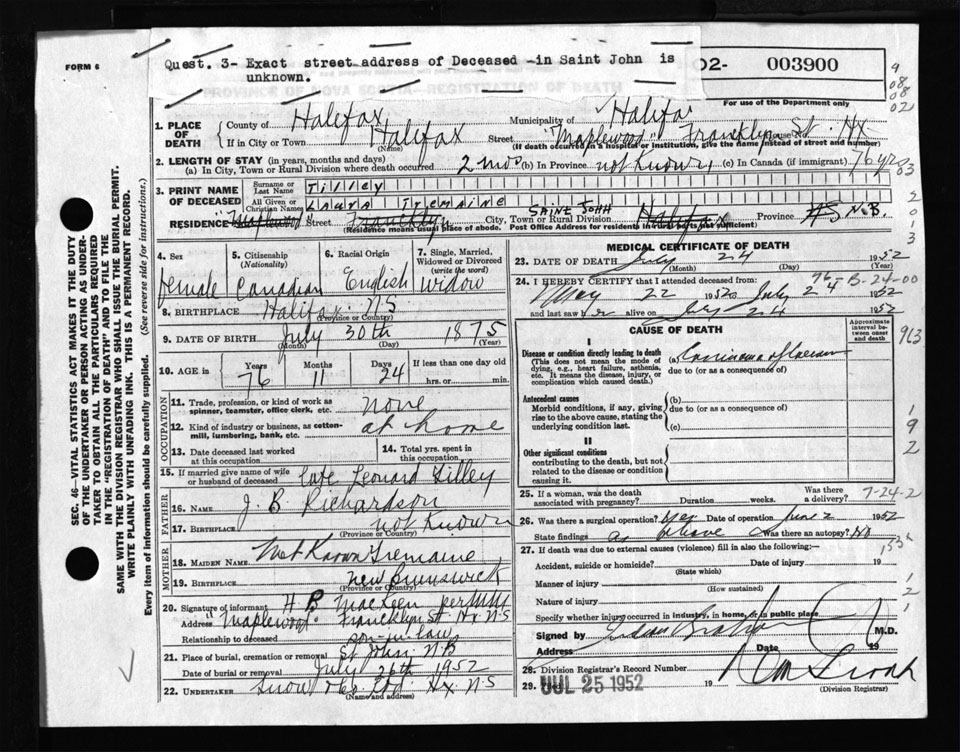 FORM 6
Quest. 3- Exact street address of Deceased -in Saint John is
unknown.
02- 003900
For use of the Department only
PROVINCE OF NOVA SCOTIA—REGISTRATION OF DEATH
1. PLACE OF DEATH County of Halifax Municipality of Halifax
If in City or Town Halifax (Name) Street "Maplewood" Francklyn House No. St. Hx.
(If death occurred in a hospital or institution, give the name instead of street and number)
2. LENGTH OF STAY (in years, months and days)
(a) In City, Town or Rural Division where death occurred 2 mos (b) In Province not known, (c) In Canada (if immigrant) 76 yrs
3. PRINT NAME OF DECEASED Surname or Last Name Tilley
All Given or Christian Names Laura Tremaine
RESIDENCE "Maplewood" Street Francklyn City, Town or Rural Division SAINT JOHN Halifax Province NS N.B.
(Residence means usual place of abode. Post Office Address for residents in rural parts not sufficient)
4. Sex female
5. Citizenship (Nationality) Canadian
6. Racial Origin English
7. Single, Married, Widowed or Divorced (write the word) widow
8. BIRTHPLACE Halifax N.S
(Province or Country)
9. DATE OF BIRTH July 30th 1875
(Month) (Day) (Year)
10. AGE in Years 76 Months 11 Days 24 If less than one day old
hrs. or min.
OCCUPATION
11. Trade, profession, or kind of work as spinner, teamster, office clerk, etc. none
12. Kind of industry or business, as cotton-mill, lumbering, bank, etc. at home
13. Date deceased last worked at this occupation
14. Total yrs. spent in this occupation
15. If married give name of wife or husband of deceased late Leonard Tilley
FATHER
16. Name J. B Richardson
17. Birthplace not known
(Province or Country)
MOTHER
18. Maiden Name Not Known Tremaine
19. Birthplace New Brunswick
(Province or Country)
20. Signature of informant H B MacKeen per
Address "Maplewood" Francklyn St. Hx. N.S
Relationship to deceased son-in-law
21. Place of burial, cremation or removal St John, N.B
Date of burial or removal July 26th 1952
22. UNDERTAKER Snow & Co Ltd. Hx. N.S
(Name and address)
MEDICAL CERTIFICATE OF DEATH
23. DATE OF DEATH July 24 1952
(Month) (Day) (Year)
24. I HEREBY CERTIFY that I attended deceased from:
May 22 1952 to July 24 1952
and last saw her alive on July 24 1952
76-B-24-00
CAUSE OF DEATH
Approximate interval between onset and death
I
Disease or condition directly leading to death
(This does not mean the mode of dying, e.g., heart failure, asthenia, etc. It means the disease, injury, or complication which caused death.)
(a) Carcinoma of
due to (or as a consequence of)
Antecedent causes
Morbid conditions, if any, giving rise to the above cause, stating the underlying condition last.
(b)
due to (or as a consequence of)
(c)
II
Other significant conditions
contributing to the death, but not related to the disease or condition causing it.
25. If a woman, was the death associated with pregnancy? Duration weeks. Was there a delivery? 7-24-2
26. Was there a surgical operation? Yes Date of operation June 2 1952
State findings as above Was there an autopsy? No
27. If death was due to external causes (violence) fill in also the following:—
Accident, suicide or homicide? Date of injury 19
(State which)
Manner of injury
(How sustained)
Nature of injury
Specify whether injury occurred in industry, in home, or in public place
Signed by M.D.
Address Date 19
28. Division Registrar's Record Number
29. JUL 25 1952 19
(Division Registrar)
SEC. 46—VITAL STATISTICS ACT MAKES IT THE DUTY
OF THE UNDERTAKER OR PERSON ACTING AS UNDER-
TAKER TO OBTAIN ALL THE PARTICULARS REQUIRED
IN THE "REGISTRATION OF DEATH" AND TO FILE THE
SAME WITH THE DIVISION REGISTRAR WHO SHALL ISSUE THE BURIAL PERMIT.
WRITE PLAINLY WITH UNFADING INK. THIS IS A PERMANENT RECORD.
Every item of information should be carefully supplied. (See reverse side for instructions.)